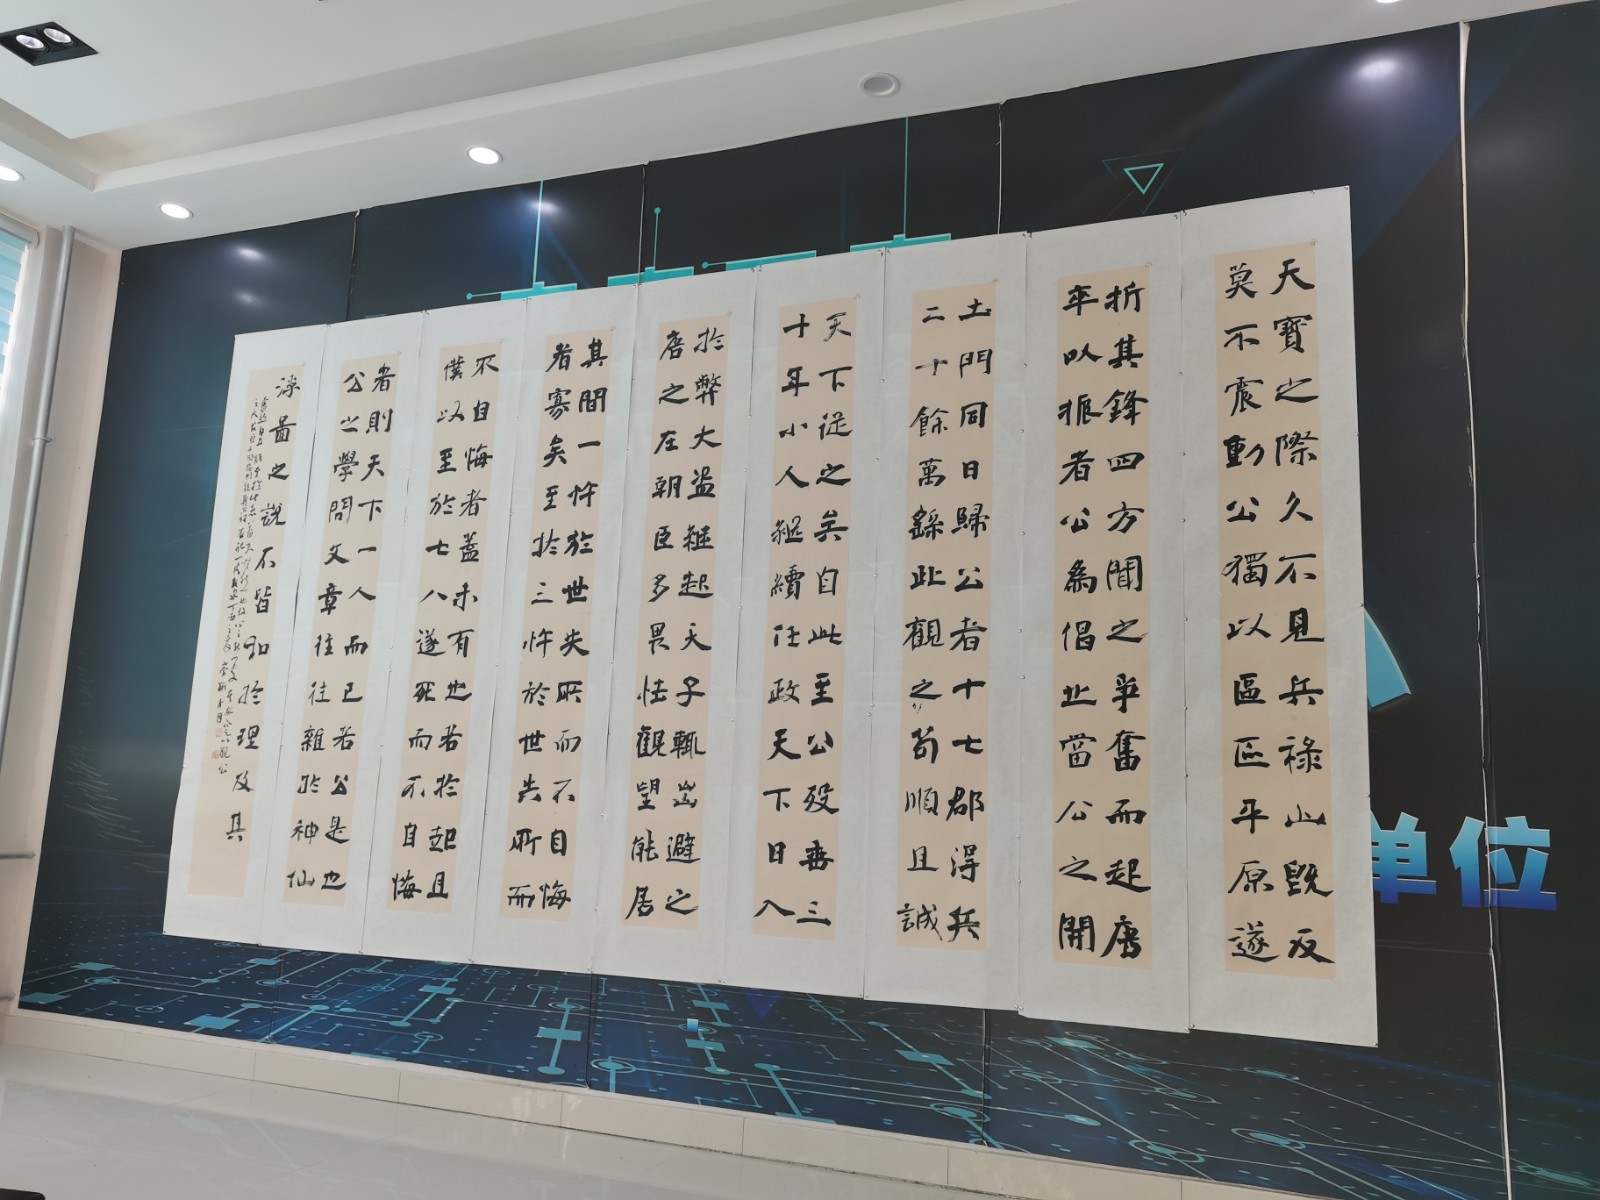 天寶之際久不見兵祿山既反
莫不震動公獨以區區平原遂
折其鋒四方聞之爭奮而起唐
卒以振者公為倡也當公之開
土門同日歸公者十七郡得兵
二十餘萬繇此觀之苟順且誠
天下從之矣自此至公歿垂三
十年小人繼續任政天下日入
於弊大盜繼起天子輒出避之
唐之在朝臣多畏怯觀望能居
其間一忤於世失所而不自悔
者寡矣至於三忤於世失所而
不自悔者蓋未有也若於起且
僕以至於七八遂死而不自悔
者則天下一人而已若公是也
公之學問文章往往雜於神仙
浮圖之說不皆和於理及其
单位